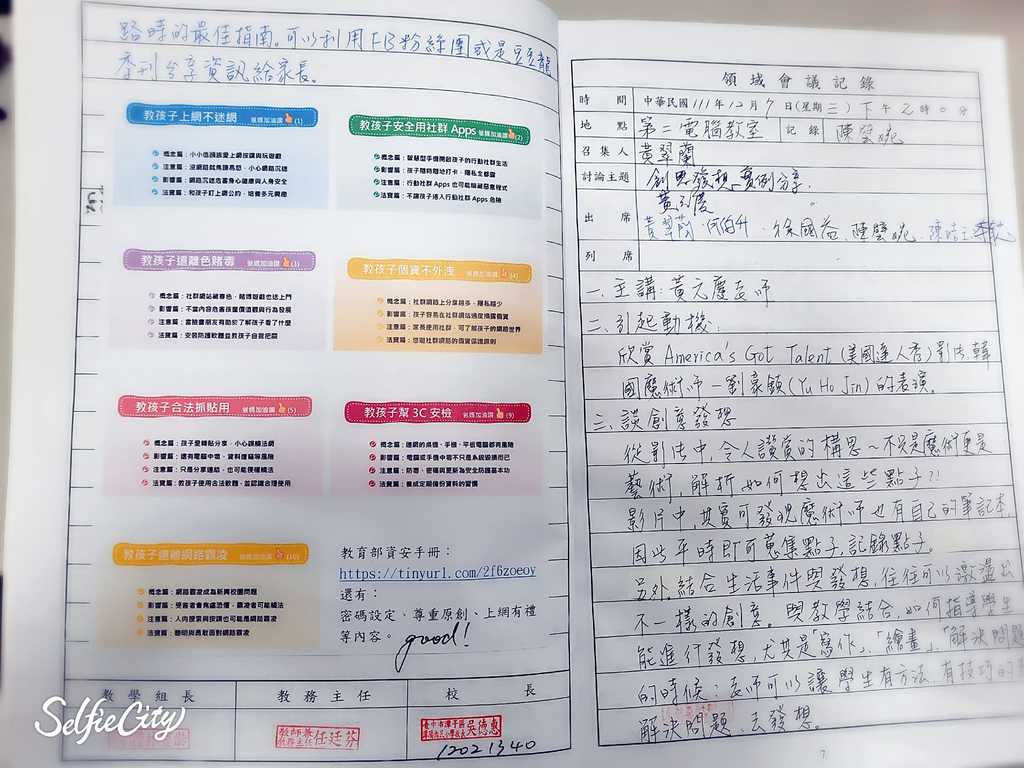 路時的最佳指南。可以利用FB粉絲團或是豆豆龍
季刊分享資訊給家長。
教孩子上網不迷網 爸媽加油讚(1)
概念篇：小小低頭族愛上網按讚與玩遊戲
注意篇：沒網路就焦躁易怒，小心網路沉迷
影響篇：網路沉迷危害身心健康與人身安全
法寶篇：和孩子訂上網公約，培養多元興趣
教孩子安全用社群 Apps 爸媽加油讚(2)
概念篇：智慧型手機開啟孩子的行動社群生活
影響篇：孩子隨時隨地打卡，隱私全都露
注意篇：行動社群 Apps 也可能暗藏惡意程式
法寶篇：不讓孩子過入行動社群 Apps 危險
教孩子遠離色賭毒 爸媽加油讚(3)
概念篇：社群網站藏春色，賭博遊戲也送上門
影響篇：不當內容危害孩童價值觀與行為發展
注意篇：當臉書朋友有助於了解孩子看了什麼
法寶篇：安裝防護軟體並教孩子自我把關
教孩子個資不外洩 爸媽加油讚(4)
概念篇：社群網路上分享越多，隱私越少
影響篇：孩子容易在社群網站過度揭露個資
注意篇：家長使用社群，可了解孩子的網路世界
法寶篇：悠遊社群網路的個資保護原則
教孩子合法抓貼用 爸媽加油讚(5)
概念篇：孩子愛轉貼分享，小心誤觸法網
影響篇：還有電腦中毒、資料遭竊等風險
注意篇：只是分享連結，也可能侵權觸法
法寶篇：教孩子使用合法軟體，並認識合理使用
教孩子幫 3C 安檢 爸媽加油讚(9)
概念篇：連網的桌機、手機、平板電腦都有風險
影響篇：電腦或手機中毒不只是系統毀損而已
注意篇：防毒、密碼與更新為安全防護基本功
法寶篇：養成定期備份資料的習慣
教孩子遠離網路霸凌 爸媽加油讚(10)
概念篇：網路霸凌成為新興校園問題
影響篇：受害者會焦慮恐懼，霸凌者可能觸法
注意篇：人肉搜索與按讚也可能是網路霸凌
法寶篇：聰明與勇敢面對網路霸凌
教育部資安手冊：
https://tinyurl.com/2f6zoeoy
還有：
密碼設定、尊重原創、上網有禮
等內容。
good!
教學組長 教務主任 校長
教師兼
教務主任 任廷芬
吳德惠
12021340
SelfieCity
領域會議記錄
時間 中華民國 111 年 12 月 7 日(星期三) 下午 2 時 0 分
地點 第二電腦教室 記錄 陳璧婉
召集人 黃翠蘭
討論主題 創思發想、實例分享
黃元慶
出席 黃翠蘭、何伯升、徐國益、陳璧婉
列席
一、主講：黃元慶老師
二、引起動機：
欣賞 America's Got Talent (美國達人秀) 劉法,韓
國魔術師－劉豪鎮(Yu Ho Jin)的表演。
三、談創意發想
從影片中,令人讚賞的構思~不只是魔術更是
藝術,解析如何想出這些點子?!
影片中,其實可發現魔術師也有自己的筆記本,
因此平時即可蒐集點子,記錄點子。
另外,結合生活事件與發想,往往可以激盪出
不一樣的創意。與教學結合,如何指導學生
能進行發想,尤其是「寫作」、「繪畫」、「解決問題
的時候：老師可以讓學生有方法、有技巧的
解決問題、去發想。
7